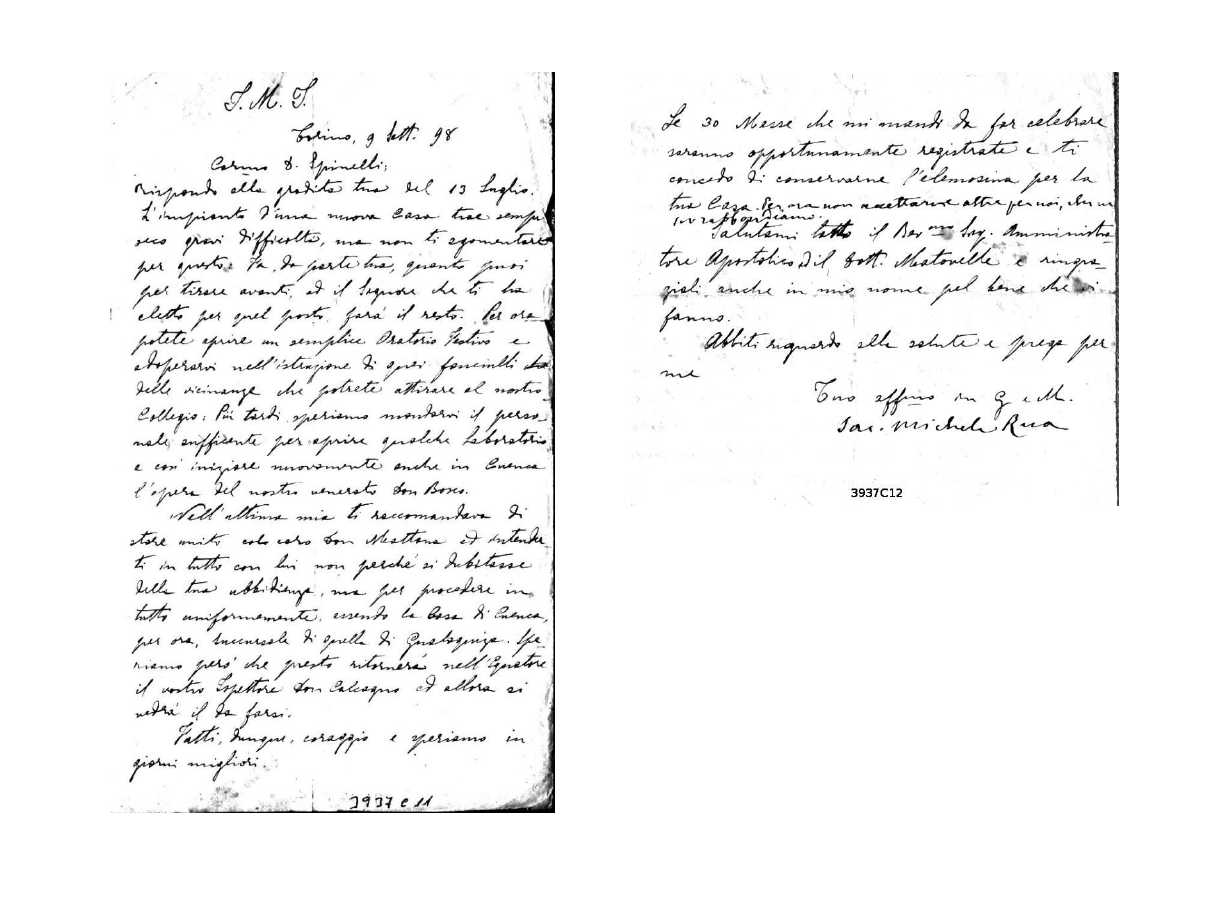 J. M. J.
Torino, 9 Sett. 98
Carmo D. Spinelli;
rispondo alla gradita tua del 13 Luglio.
L'impianto d'una nuova Casa trae sempre
seco gravi difficoltà, ma non ti sgomentare
per questo: Fa, da parte tua, quanto puoi
per tirare avanti, ed il Signore che ti ha
eletto per quel posto, farà il resto. Per ora
potete aprire un semplice Oratorio Festivo e
adoperarvi nell'istruzione di quei fanciulli
delle vicinanze che potrete attirare al nostro
Collegio: Più tardi speriamo mandarvi il perso-
nale sufficente per aprire qualche Laboratorio
e così iniziare nuovamente anche in Cuenca
l'opera del nostro venerato Don Bosco.
Nell'ultima mia ti raccomandava di
stare unito col caro Don Mattana ed intender-
ti in tutto con lui non perché si dubitasse
della tua ubbidienza, ma per procedere in
tutto uniformemente, essendo la Casa di Cuenca,
per ora, succursale di quella di Gualaquiza. Spe-
riamo però che presto ritornerà nell'Equatore
il vostro Ispettore Don Calcagno ed allora si
vedrà il da farsi.
Fatti, dunque, coraggio e speriamo in
giorni migliori.
3937 C 11
Le 30 Messe che mi mandi da far celebrare
saranno opportunamente registrate e ti
concedo di conservarne l'elemosina per la
tua Casa. Per ora non accettarne altre per noi, che ne
sovrabbondiamo.
Salutami tutto il Rev.mo Sig. Amministra-
tore Apostolico, il Dott. Matovelle e ringra-
ziali anche in mio nome pel bene che vi
fanno.
Abbiti riguardo alla salute e prega per
me
Tuo affmo in G. e M.
Sac. Michele Rua
3937C12